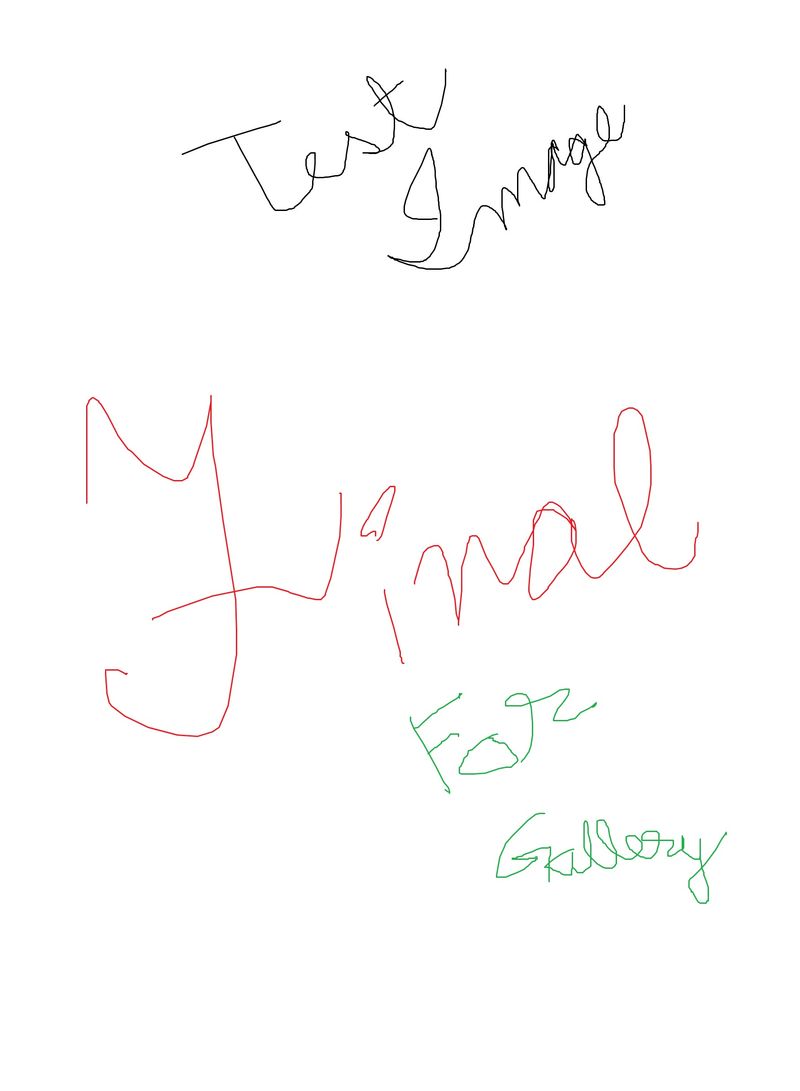 Test
Image
Final
For
Gallery